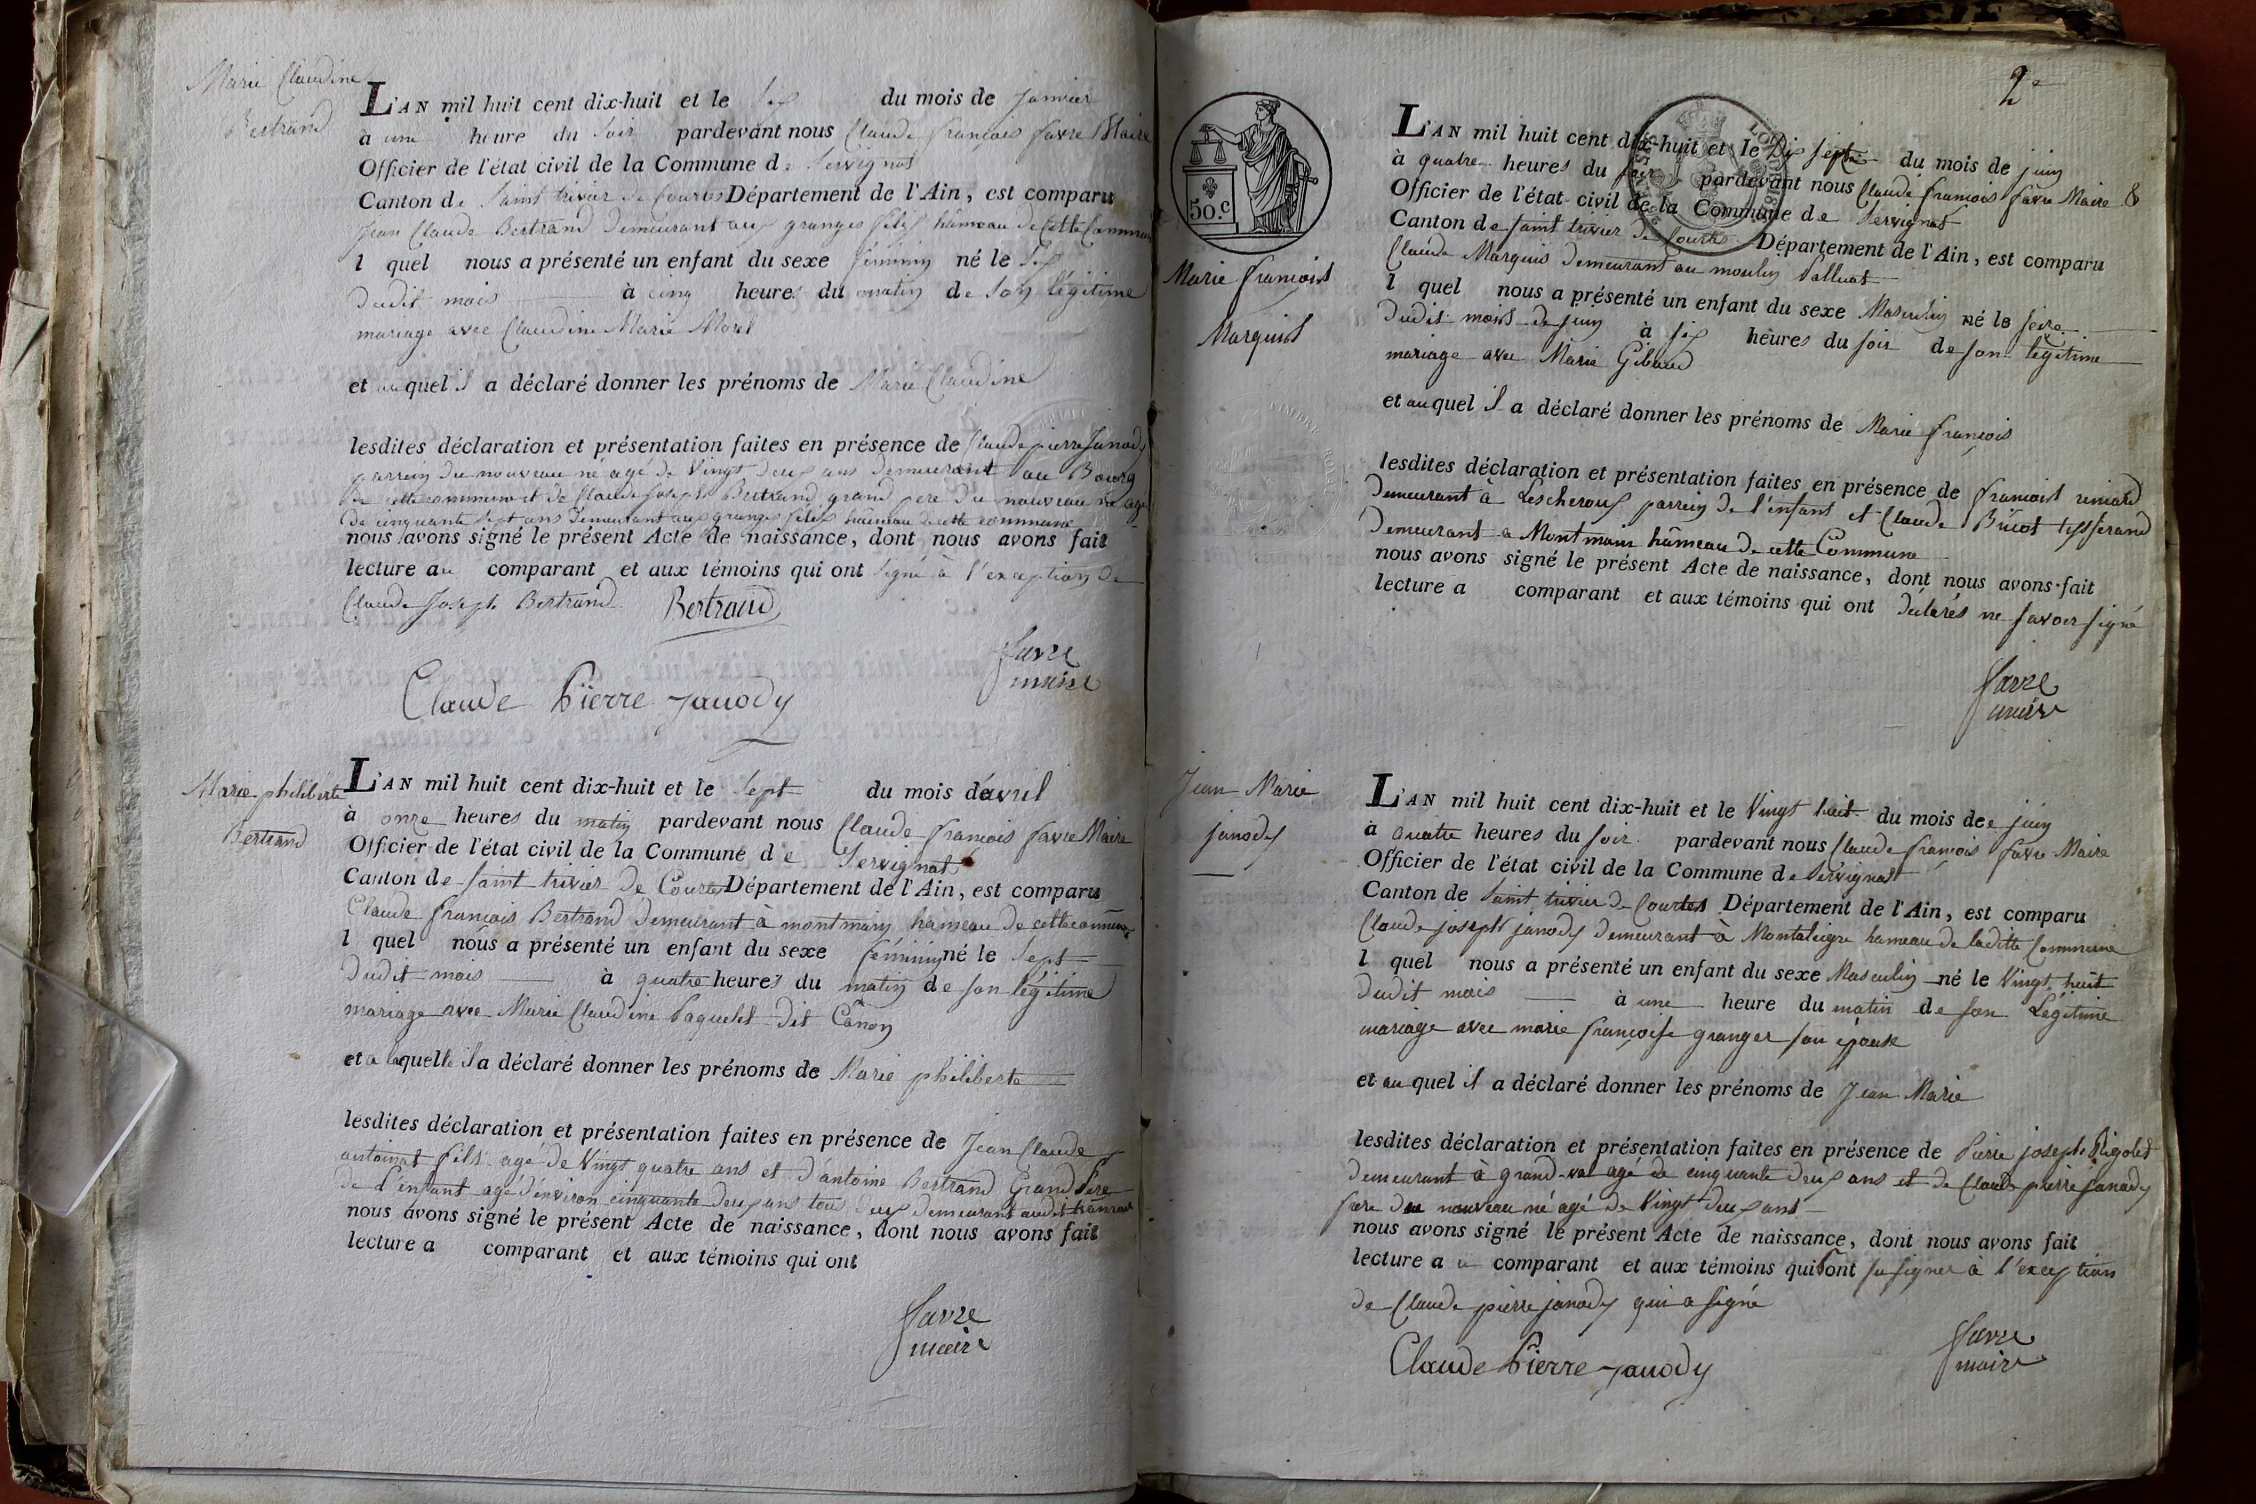 Marie Claudine
Bertrand
L'AN mil huit cent dix-huit et le six du mois de Janvier
à une heure du soir pardevant nous Claude françois favre Maire
Officier de l'état civil de la Commune de Servignat
Canton de Saint trivier de Courtes Département de l'Ain, est comparu
Jean Claude Bertrand demeurant aux granges hâmeau de cette Commune
l quel nous a présenté un enfant du sexe féminin né le six
dudit mois à cinq heures du matin de son légitime
mariage avec Claudine Marie Morel
et auquel il a déclaré donner les prénoms de Marie Claudine
lesdites déclaration et présentation faites en présence de Claude pierre Janody
parrein du nouveau né agé de Vingt deux ans demeurant au Bourg
de cette commune et de Claude Joseph Bertrand grand pere du nouveau né agé
de cinquante sept ans demeurant aux granges hâmeau de cette commune
nous avons signé le présent Acte de naissance, dont nous avons fait
lecture au comparant et aux témoins qui ont signé à l'exception de
Claude Joseph Bertrand Bertrand
favre
maire
Claude Pierre Janody
Marie philiberte
Bertrand
L'AN mil huit cent dix-huit et le Sept du mois d'avril
à onze heures du matin pardevant nous Claude françois favre Maire
Officier de l'état civil de la Commune de Servignat
Canton de Saint trivier de Courtes Département de l'Ain, est comparu
Claude françois Bertrand demeurant à montmain hameau de cette commune
l quel nous a présenté un enfant du sexe féminin né le Sept
dudit mois à quatre heures du matin de son légitime
mariage avec Marie Claudine Paquelet dit Canon
et a laquelle il a déclaré donner les prénoms de Marie philiberte
lesdites déclaration et présentation faites en présence de Jean Claude
antoinat fils agé de Vingt quatre ans et d'antoine Bertrand Grand Père
de l'enfant agé d'environ cinquante deux ans tous deux demeurant audit
nous avons signé le présent Acte de naissance, dont nous avons fait
lecture a comparant et aux témoins qui ont
favre
maire
2e
50.c
TIMBRE ROYAL
Marie françois
Marquis
L'AN mil huit cent dix-huit et le Dix sept du mois de juin
à quatre heures du soir pardevant nous Claude françois favre Maire &
Officier de l'état civil de la Commune de Servignat
Canton de saint trivier de Courtes Département de l'Ain, est comparu
Claude Marquis demeurant au moulin Valluat
l quel nous a présenté un enfant du sexe Masculin né le seize
dudit mois de juin à six heures du soir de son légitime
mariage avec Marie Gibaud
et auquel il a déclaré donner les prénoms de Marie françois
lesdites déclaration et présentation faites en présence de françois
demeurant à Lescheroux parrein de l'enfant et Claude Bucot tisserand
demeurant a Montmain hâmeau de cette Commune
nous avons signé le présent Acte de naissance, dont nous avons fait
lecture a comparant et aux témoins qui ont déclarés ne savoir signé
favre
maire
Jean Marie
janody
L'AN mil huit cent dix-huit et le Vingt huit du mois de juin
à quatre heures du soir pardevant nous Claude françois favre Maire
Officier de l'état civil de la Commune de Servignat
Canton de Saint trivier de Courtes Département de l'Ain, est comparu
Claude joseph janody demeurant à Montaleigre hameau de ladite Commune
l quel nous a présenté un enfant du sexe Masculin né le Vingt huit
dudit mois à une heure du matin de son Légitime
mariage avec marie françoise granger son épouse
et auquel il a déclaré donner les prénoms de Jean Marie
lesdites déclaration et présentation faites en présence de Pierre joseph Rigolet
demeurant à grand-val agé de cinquante deux ans et de Claude pierre janody
frere du nouveau né agé de Vingt deux ans
nous avons signé le présent Acte de naissance, dont nous avons fait
lecture a u comparant et aux témoins qui ont su signer à l'exception
de Claude pierre janody qui a signé
Claude Pierre Janody
favre
maire